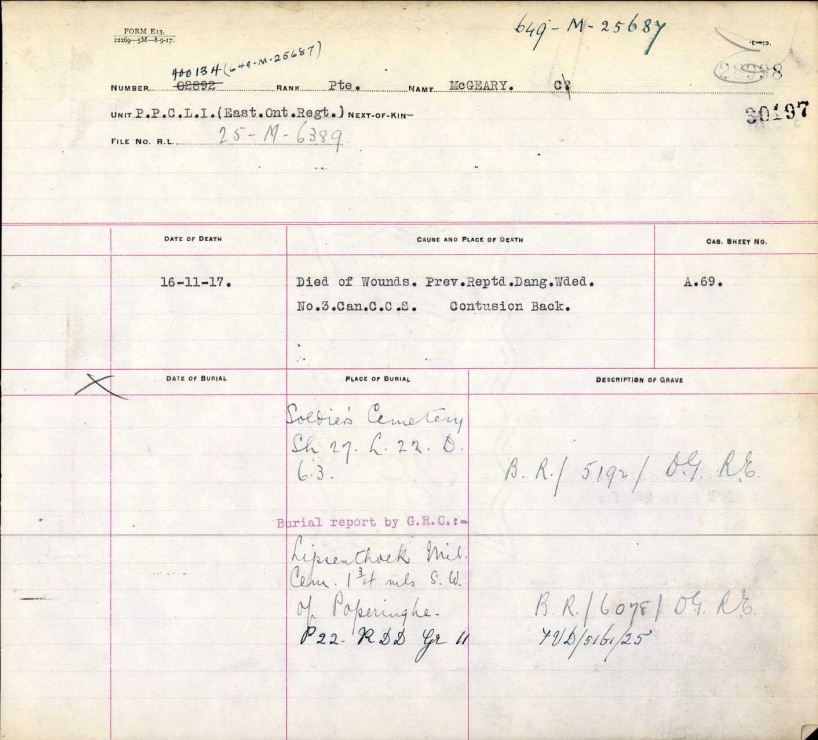 FORM E13.
12269—5M—8-9-17.
649-M-25687
28998
30197
400134 (649-M-25687)
NUMBER 02892 RANK Pte. NAME McGEARY. C
UNIT P.P.C.L.I.(East.Ont.Regt.) NEXT-OF-KIN—
FILE NO. R.L. 25-M-6389
DATE OF DEATH CAUSE AND PLACE OF DEATH CAB. SHEET NO.
16-11-17. Died of Wounds. Prev.Reptd.Dang.Wded. A.69.
No.3.Can.C.C.S. Contusion Back.
DATE OF BURIAL PLACE OF BURIAL DESCRIPTION OF GRAVE
Soldier's Cemetery
Sh 27. L. 22. D.
6.3. B.R./ 5192/ D.G. R.E.
Burial report by G.R.C.:-
Lijssenthoek Mil.
Cem. 1 3/4 mls S.W.
of Poperinghe. B.R./6078/ D.G. R.E.
P22. R DD Gr 11